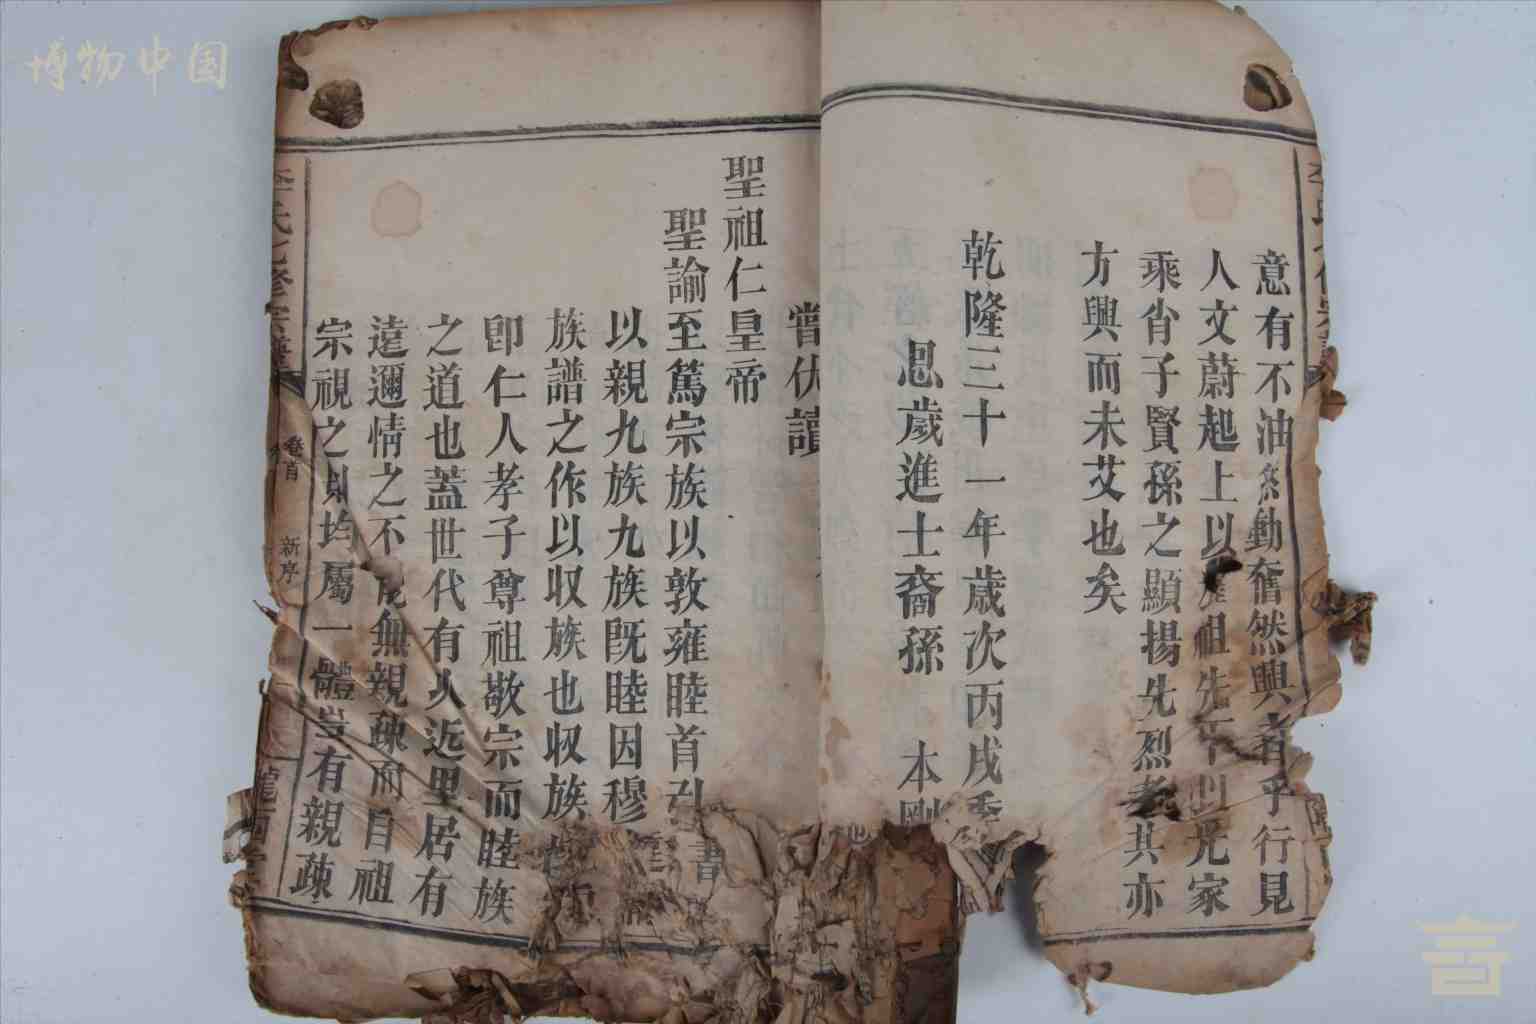 博物中国
意有不油然動奮然興者乎行見
人文蔚起上以祖先下以光家
乘肖子賢孫之顯揚先烈者其亦
方興而未艾也矣
乾隆三十一年歲次丙戌季
恩歲進士裔孫 本剛
嘗伏讀
聖祖仁皇帝
聖諭至篤宗族以敦雍睦首引書
以親九族九族既睦因穆
族譜之作以収族也収族
即仁人孝子尊祖敬宗而睦族
之道也蓋世代有久近里居有
遠邇情之不能無親疎而自祖
宗視之則均屬一體豈有親疎
李氏七修宗譜
卷首
新序
隴西堂